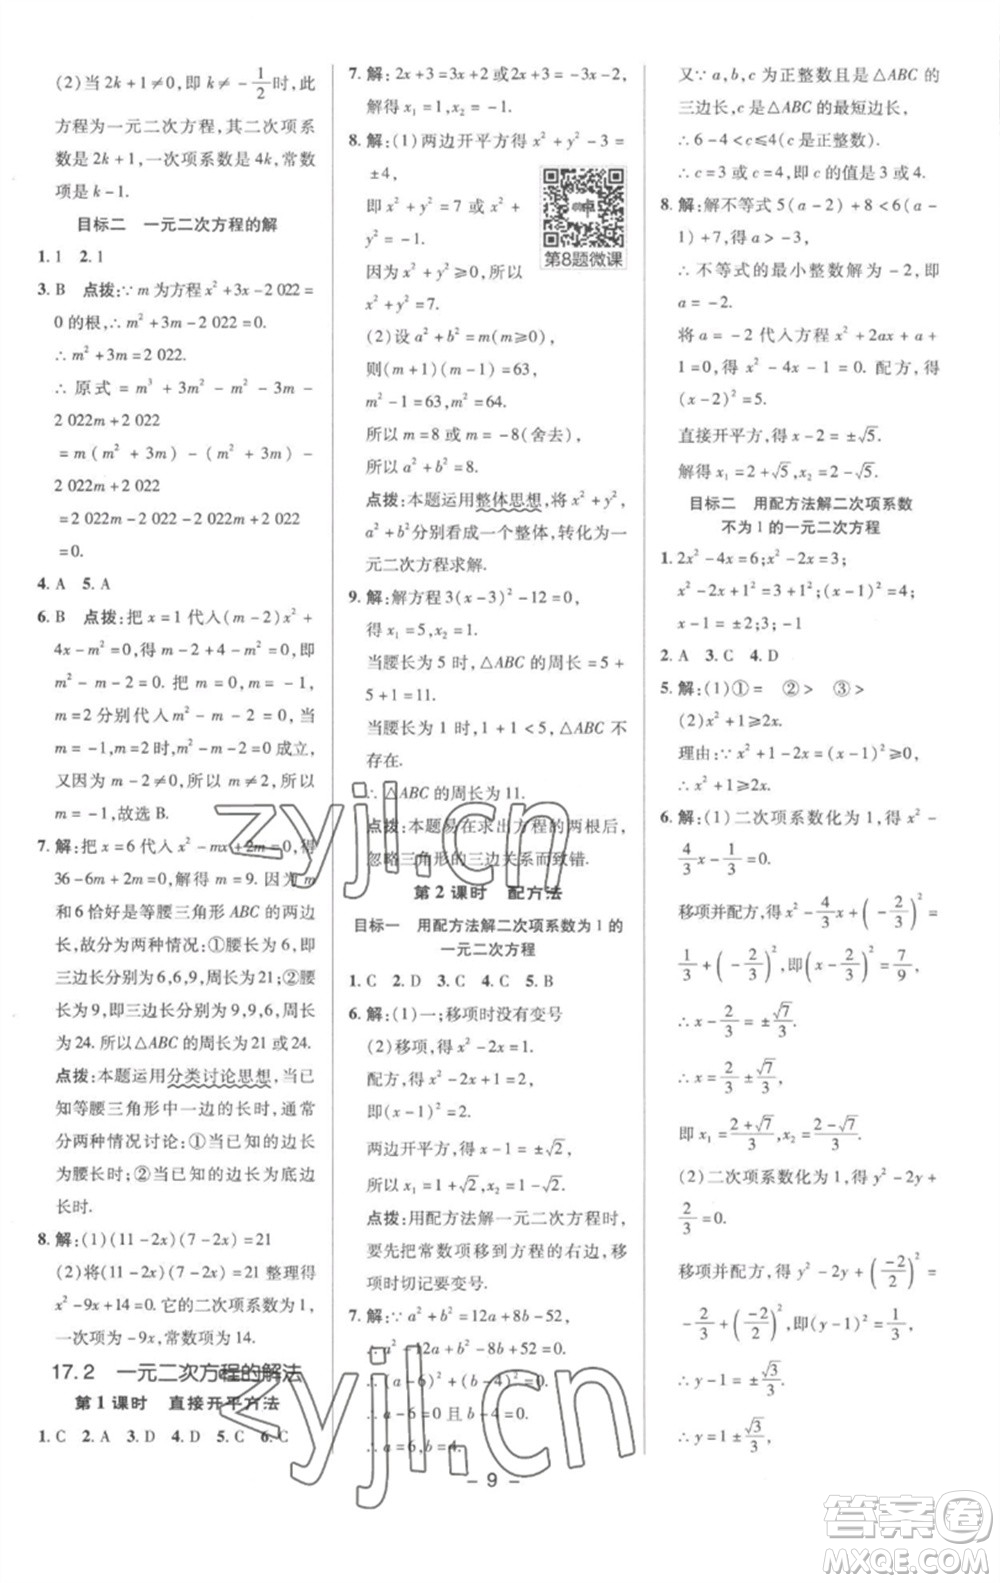 (2)当 2k+1≠0,即 k≠-1/2时,此
方程为一元二次方程,其二次项系
数是 2k+1,一次项系数是 4k,常数
项是 k-1.
目标二 一元二次方程的解
1. 1 2. 1
3. B 点拨:∵m 为方程 x²+3x-2 022=
0 的根,∴m²+3m-2 022=0.
∴m²+3m=2 022.
∴原式=m³+3m²-m²-3m-
2 022m+2 022
=m(m²+3m)-(m²+3m)-
2 022m+2 022
=2 022m-2 022-2 022m+2 022
=0.
4. A 5. A
6. B 点拨:把 x=1 代入(m-2)x²+
4x-m²=0,得 m-2+4-m²=0,
m²-m-2=0. 把 m=2 和
m=-1 分别代入 m²-m-2=0,当
m=-1,m=2 时,m²-m-2=0 成立,
又因为 m-2≠0,所以 m≠2,所以
m=-1,故选 B.
7. 解:把 x=6 代入 x²-mx+2m=0,得
36-6m+2m=0,解得 m=9. 因为 m
和 6 恰好是等腰三角形 ABC 的两边
长,故分为两种情况:①腰长为 6,即
三边长分别为 6,6,9,周长为 21;②腰
长为 9,即三边长分别为 9,9,6,周长
为 24. 所以△ABC 的周长为 21 或 24.
点拨:本题运用分类讨论思想,当已
知等腰三角形中一边的长时,通常
分两种情况讨论:①当已知的边长
为腰长时;②当已知的边长为底边
长时.
8. 解:(1)(11-2x)(7-2x)=21
(2)将(11-2x)(7-2x)=21 整理得
x²-9x+14=0. 它的二次项系数为 1,
一次项为-9x,常数项为 14.
17.2 一元二次方程的解法
第 1 课时 直接开平方法
1. C 2. A 3. D 4. D 5. C 6. C
7. 解:2x+3=3x+2 或 2x+3=-(3x+2),
解得 x₁=1,x₂=-1.
8. 解:(1)两边开平方得 x²+y²-3=
±4,
即 x²+y²=7 或 x²+
y²=-1,
因为 x²+y²≥0,所以
x²+y²=7.
第8题微课
(2)设 a²+b²=m(m≥0),
则(m+1)(m-1)=63,
m²-1=63,m²=64.
所以 m=8 或 m=-8(舍去),
所以 a²+b²=8.
点拨:本题运用整体思想,将 x²+y²,
a²+b²分别看成一个整体,转化为一
元二次方程求解.
9. 解:解方程 3(x-3)²-12=0,
得 x₁=5,x₂=1.
当腰长为 5 时,△ABC 的周长为 5+
5+1=11.
当腰长为 1 时,1+1<5,△ABC 不
存在.
∴△ABC 的周长为 11.
点拨:本题易在求出方程的两根后,
忽略三角形的三边关系而致错.
第 2 课时 配方法
目标一 用配方法解二次项系数为 1 的
一元二次方程
1. C 2. D 3. C 4. C 5. B
6. 解:(1)一;移项时没有变号
(2)移项,得 x²-2x=1.
配方,得 x²-2x+1=2,
即(x-1)²=2.
两边开平方,得 x-1=±√2,
所以 x₁=1+√2,x₂=1-√2.
点拨:用配方法解一元二次方程时,
要先把常数项移到方程的右边,移
项时切记要变号.
7. 解:∵a²+b²=12a+8b-52,
∴a²-12a+b²-8b+52=0.
∴(a-6)²+(b-4)²=0.
∴a-6=0 且 b-4=0.
∴a=6,b=4.
又∵a,b,c 为正整数且是△ABC 的
三边长,c 是△ABC 的最短边长,
∴6-4<c≤4(c 是正整数).
∴c=3 或 c=4,即 c 的值是 3 或 4.
8. 解:解不等式 5(a-2)+8<6(a-
1)+7,得 a>-3.
∴不等式的最小整数解为-2,即
a=-2.
将 a=-2 代入方程 x²+2ax+a+
1=0,得 x²-4x-1=0. 配方,得
(x-2)²=5.
直接开平方,得 x-2=±√5.
解得 x₁=2+√5,x₂=2-√5.
目标二 用配方法解二次项系数
不为 1 的一元二次方程
1. 2x²-4x=6;x²-2x=3;
x²-2x+1²=3+1²;(x-1)²=4;
x-1=±2;3;-1
2. A 3. C 4. D
5. 解:(1)①= ②> ③>
(2)x²+1≥2x.
理由:∵x²+1-2x=(x-1)²≥0,
∴x²+1≥2x.
6. 解:(1)二次项系数化为 1,得 x²-
4/3x-1/3=0.
移项并配方,得 x²-4/3x+(-2/3)²=
1/3+(-2/3)²,即(x-2/3)²=7/9,
∴x-2/3=±√7/3.
∴x=2/3±√7/3,
即 x₁=(2+√7)/3,x₂=(2-√7)/3.
(2)二次项系数化为 1,得 y²-2y+
2/3=0.
移项并配方,得 y²-2y+(-2/2)²=
-2/3+(-2/2)²,即(y-1)²=1/3,
∴y-1=±√3/3,
- 9 -
zyjl.cn
zyjl.cn
答案圈
MXQE.COM